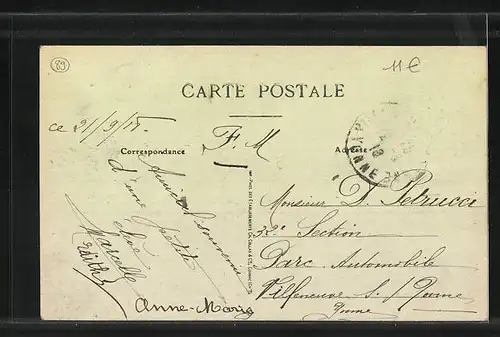 89
11€
CARTE POSTALE
ce 21/9/15.
F. M
Correspondance
Adresse
Amical souvenir
d'une petite
Marcelle
Anne-Marie
Monsieur D. Petrucci
32e Section
Parc Automobile
Villeneuve s./ Yonne
Yonne